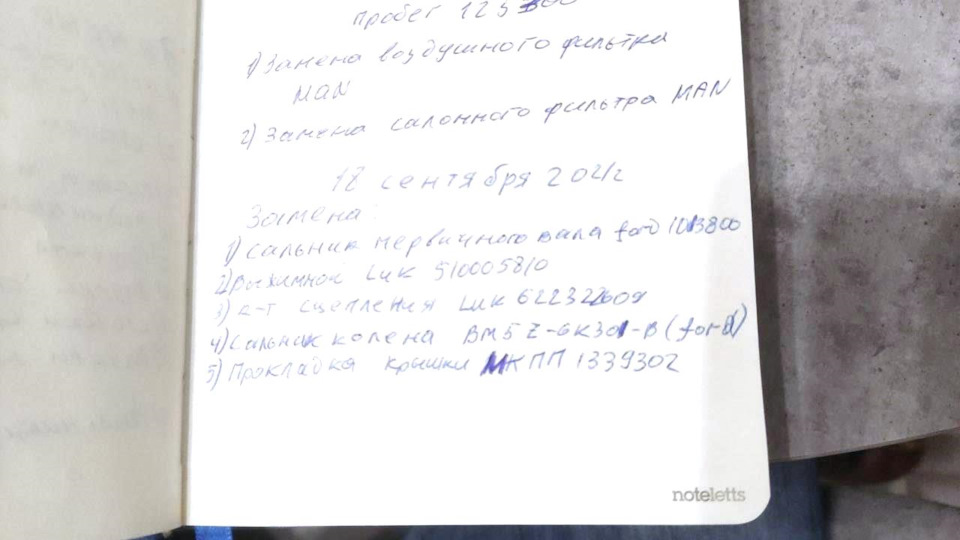 Пробег 123300
1) Замена воздушного фильтра
MAN
2) Замена салонного фильтра MAN
18 сентября 2021г
Замена:
1) Сальник первичного вала ford 1013800
2) Выжимной Luk 510005810
3) к-т сцепления Luk 622322609
4) Сальник колена BM5Z-6K301-B (ford)
5) Прокладка крышки МКПП 1339302
noteletts